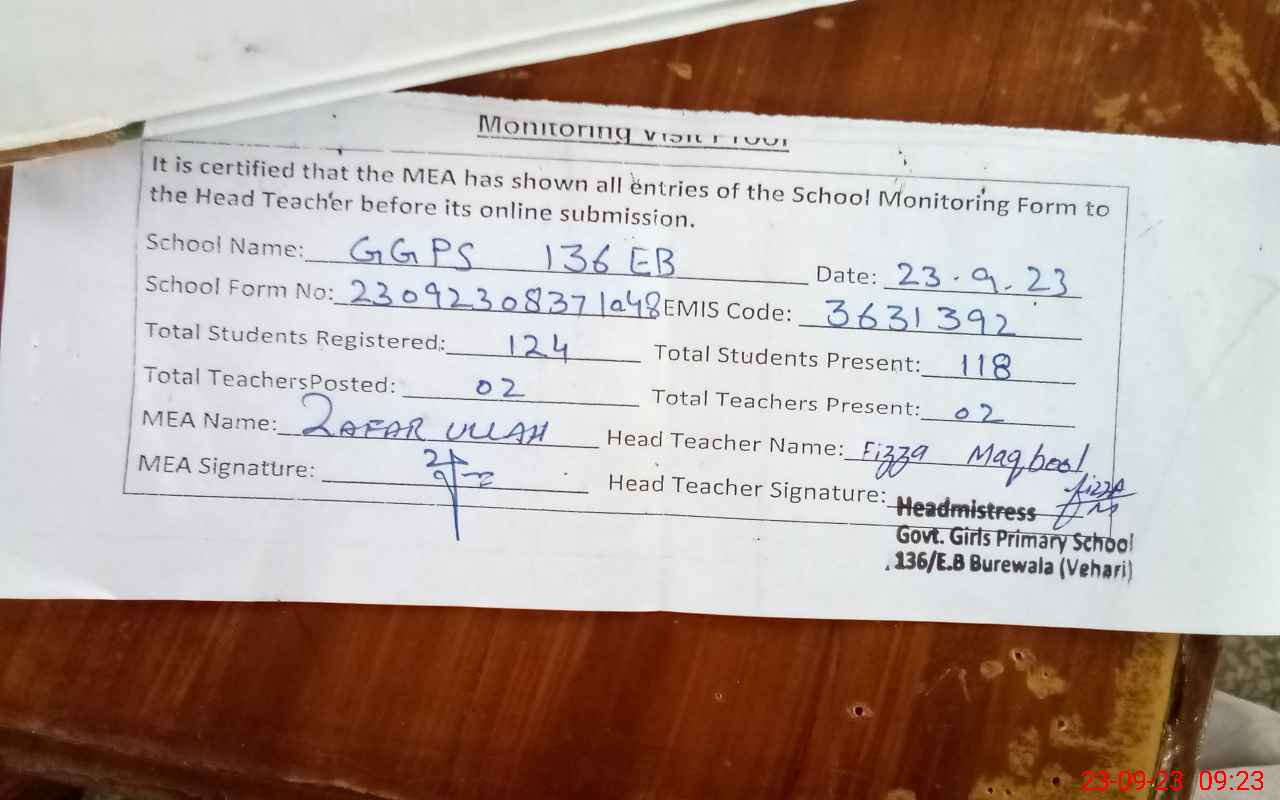 Monitoring Visit Proof
It is certified that the MEA has shown all entries of the School Monitoring Form to
the Head Teacher before its online submission.
School Name: GGPS 136 EB Date: 23.9.23
School Form No: 23092308371948 EMIS Code: 3631392
Total Students Registered: 124 Total Students Present: 118
Total TeachersPosted: 02 Total Teachers Present: 02
MEA Name: ZAFAR ULLAH Head Teacher Name: Fizza Maqbool
MEA Signature: Head Teacher Signature:
Headmistress
Govt. Girls Primary School
136/E.B Burewala (Vehari)
23-09-23 09:23